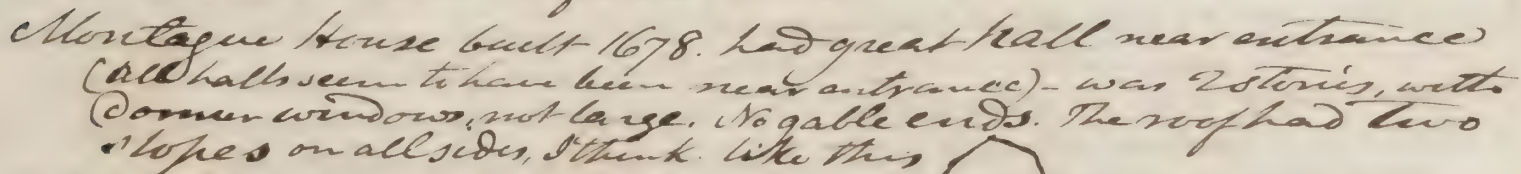 Montague House built 1678. had great hall near entrance
(all halls seem to have been near entrance) - was 2 stories, with
Dormer windows, not large. No gable ends. The roof had two
slopes on all sides, I think. like this